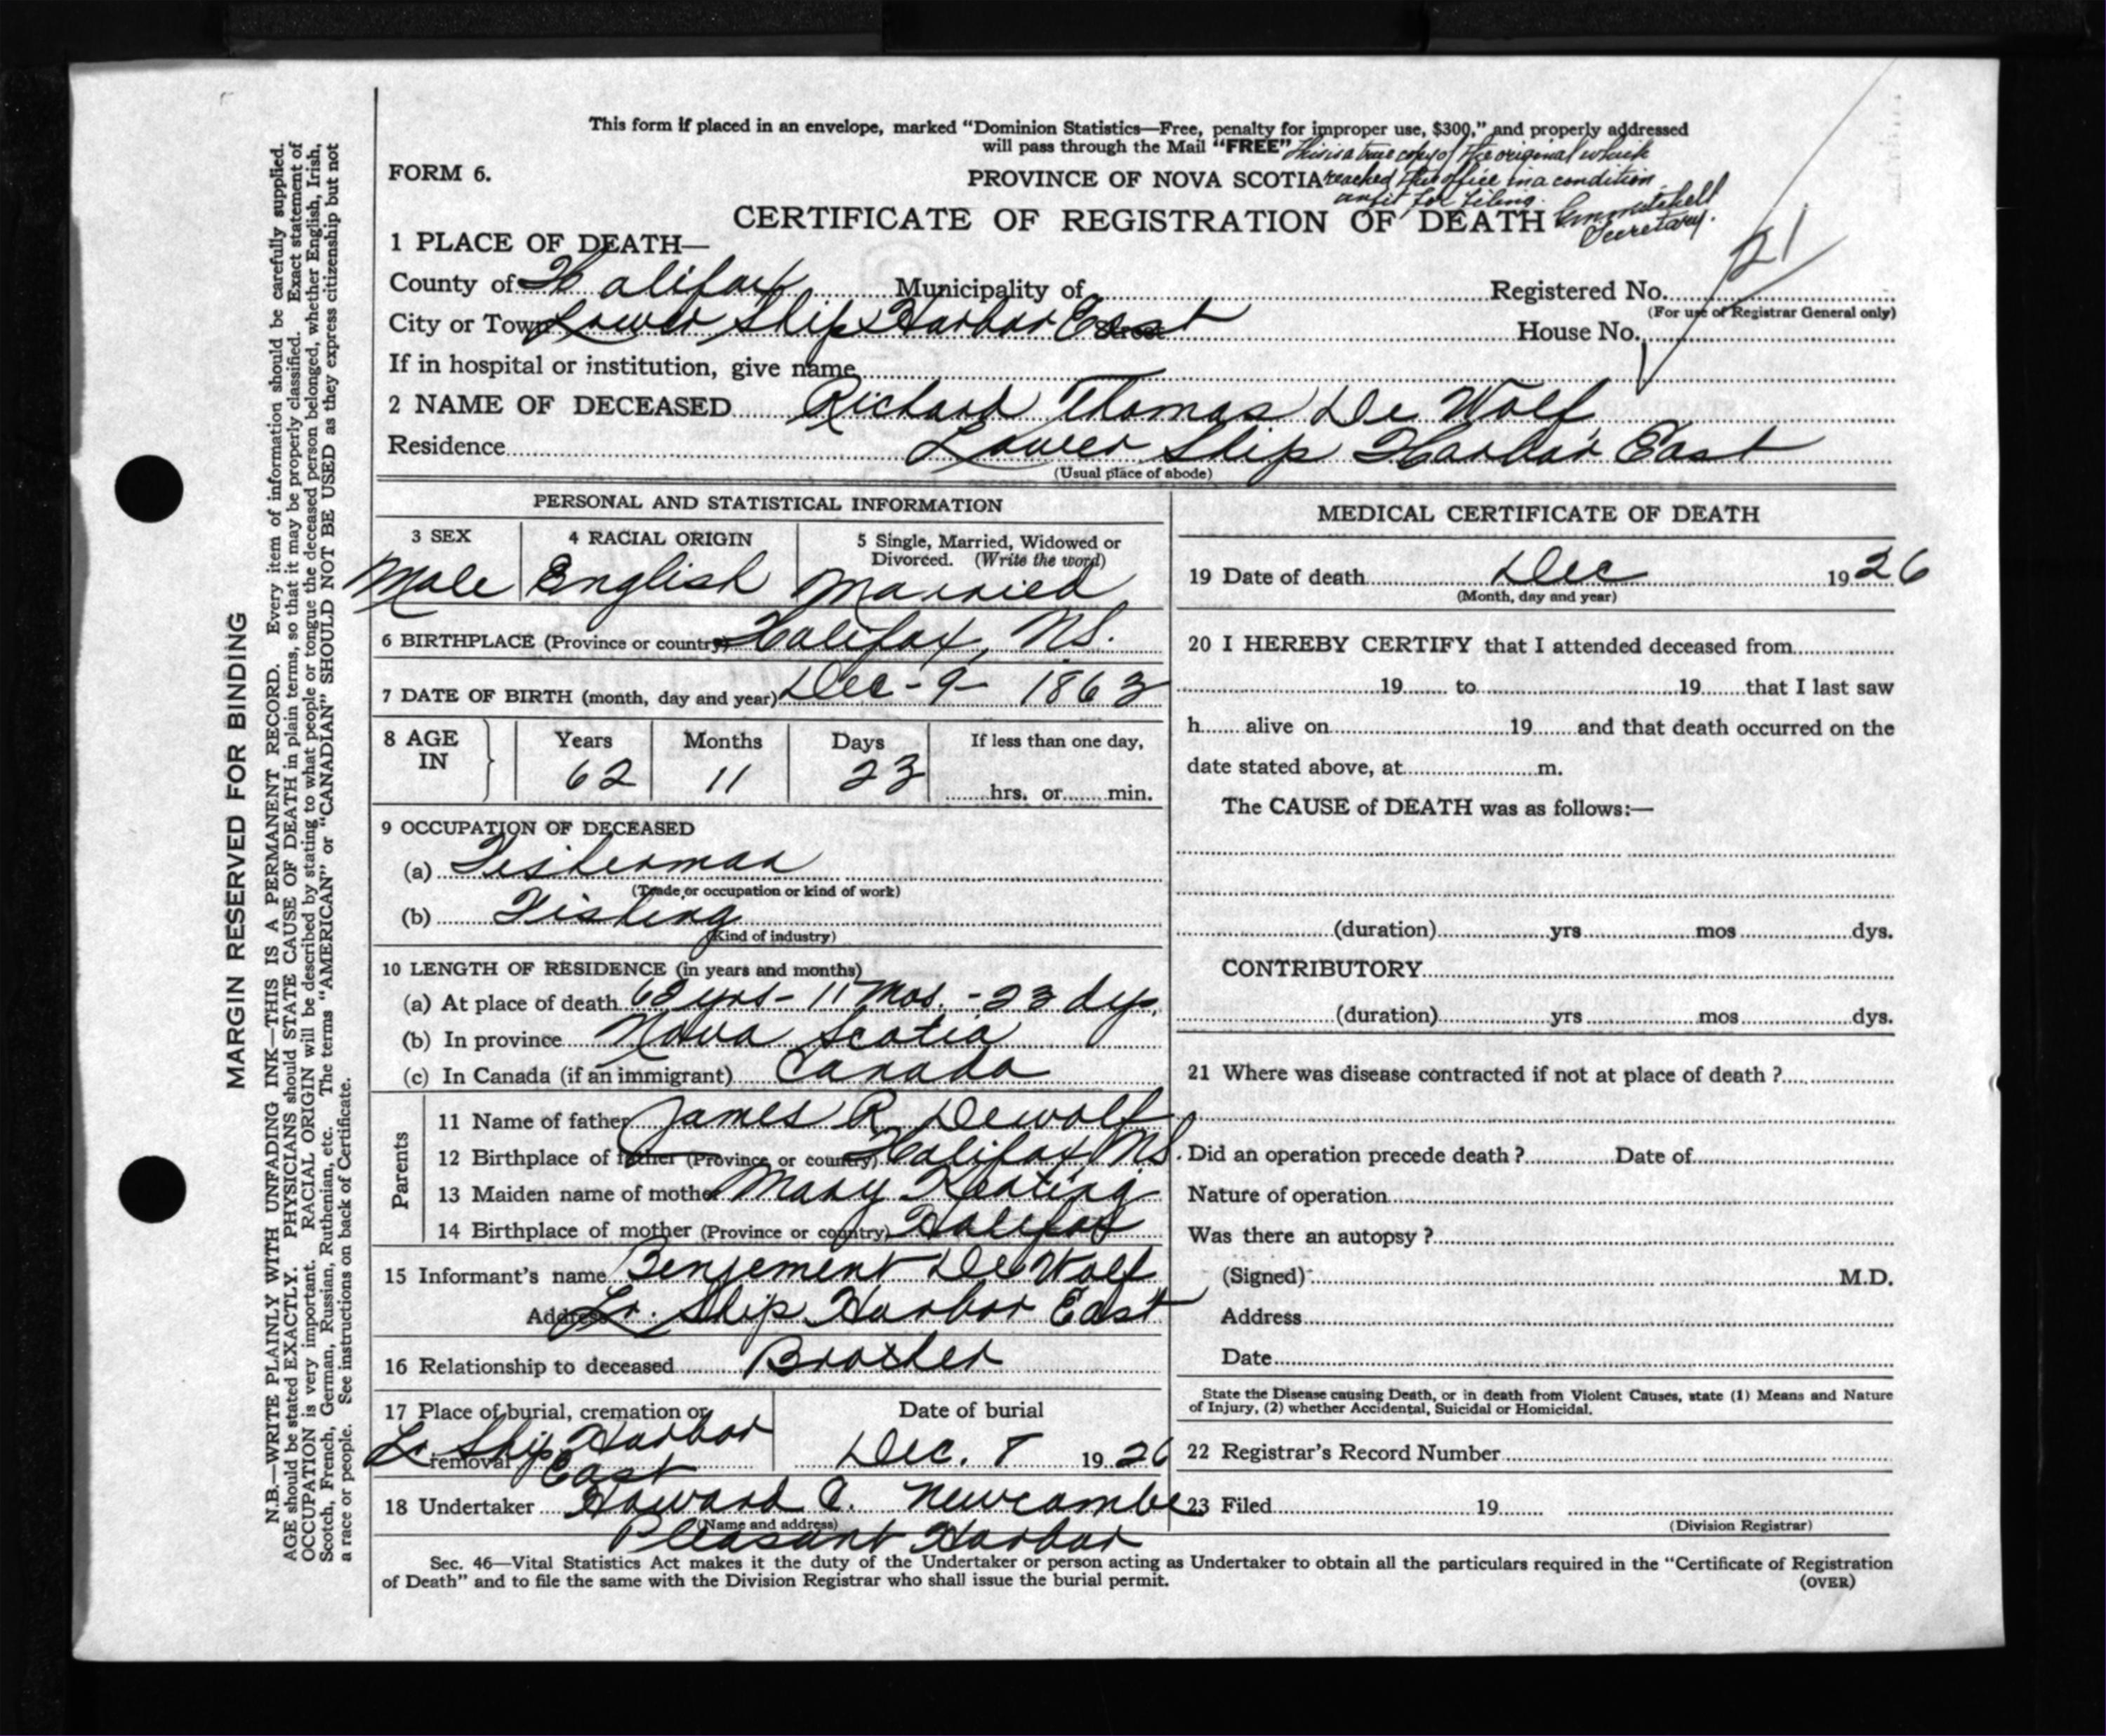 This form if placed in an envelope, marked “Dominion Statistics—Free, penalty for improper use, $300,” and properly addressed
will pass through the Mail “FREE”
This is a true copy of the original which
reached this office in a condition
unfit for filing.
Secretary.
FORM 6.
PROVINCE OF NOVA SCOTIA
CERTIFICATE OF REGISTRATION OF DEATH
1 PLACE OF DEATH—
County of Halifax Municipality of Registered No. 21
(For use of Registrar General only)
City or Town Lower Ship Harbor East Street House No.
If in hospital or institution, give name
2 NAME OF DECEASED Richard Thomas De Wolf
Residence Lower Ship Harbor East
(Usual place of abode)
PERSONAL AND STATISTICAL INFORMATION
3 SEX 4 RACIAL ORIGIN 5 Single, Married, Widowed or
Divorced. (Write the word)
Male English Married
6 BIRTHPLACE (Province or country) Halifax, N.S.
7 DATE OF BIRTH (month, day and year) Dec - 9 - 1863
8 AGE IN Years Months Days If less than one day,
62 11 23 hrs. or min.
9 OCCUPATION OF DECEASED
(a) Fisherman
(Trade or occupation or kind of work)
(b) Fishing
(Kind of industry)
10 LENGTH OF RESIDENCE (in years and months)
(a) At place of death 62 yrs - 11 mos. - 23 dys.
(b) In province Nova Scotia
(c) In Canada (if an immigrant) Canada
Parents
11 Name of father James R Dewolf
12 Birthplace of father (Province or country) Halifax N.S.
13 Maiden name of mother Mary Keating
14 Birthplace of mother (Province or country) Halifax
15 Informant's name Benjement De Wolf
Address Lr. Ship Harbor East
16 Relationship to deceased Brother
17 Place of burial, cremation or removal Date of burial
Lr Ship Harbor East Dec. 8 1926
18 Undertaker Howard C. Newcombe
(Name and address)
Pleasant Harbor
MEDICAL CERTIFICATE OF DEATH
19 Date of death Dec 1926
(Month, day and year)
20 I HEREBY CERTIFY that I attended deceased from
19 to 19 that I last saw
h alive on 19 and that death occurred on the
date stated above, at m.
The CAUSE of DEATH was as follows:—
(duration) yrs mos dys.
CONTRIBUTORY
(duration) yrs mos dys.
21 Where was disease contracted if not at place of death ?
Did an operation precede death ? Date of
Nature of operation
Was there an autopsy ?
(Signed) M.D.
Address
Date
State the Disease causing Death, or in death from Violent Causes, state (1) Means and Nature
of Injury, (2) whether Accidental, Suicidal or Homicidal.
22 Registrar's Record Number
23 Filed 19
(Division Registrar)
Sec. 46—Vital Statistics Act makes it the duty of the Undertaker or person acting as Undertaker to obtain all the particulars required in the “Certificate of Registration
of Death” and to file the same with the Division Registrar who shall issue the burial permit.
(OVER)
MARGIN RESERVED FOR BINDING
N.B.—WRITE PLAINLY WITH UNFADING INK—THIS IS A PERMANENT RECORD. Every item of information should be carefully supplied.
AGE should be stated EXACTLY. PHYSICIANS should STATE CAUSE OF DEATH in plain terms, so that it may be properly classified. Exact statement of
OCCUPATION is very important. RACIAL ORIGIN will be described by stating to what people or tongue the deceased person belonged, whether English, Irish,
Scotch, French, German, Russian, Ruthenian, etc. The terms “AMERICAN” or “CANADIAN” SHOULD NOT BE USED as they express citizenship but not
a race or people. See instructions on back of Certificate.